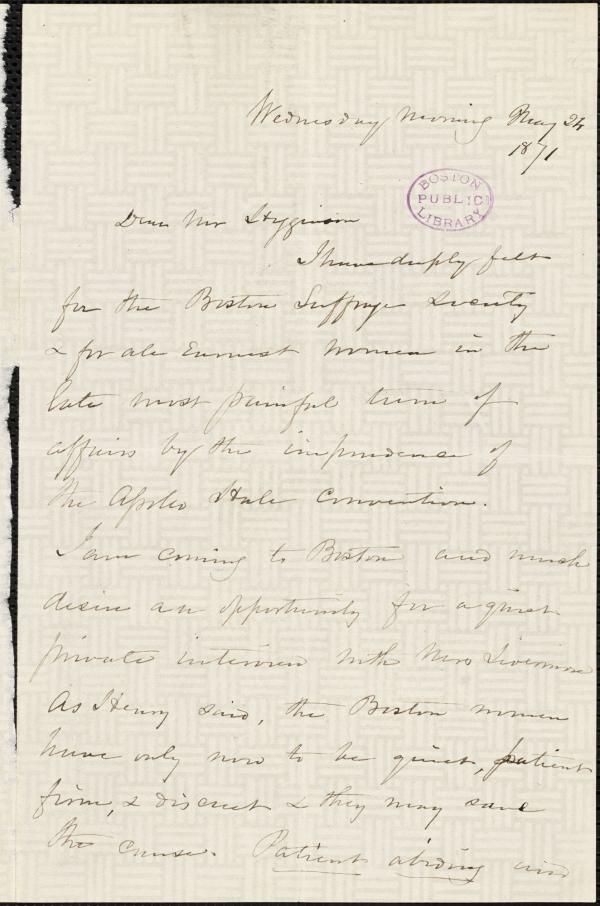 Wednesday Morning May 24
1871
BOSTON
PUBLIC
LIBRARY
Dear Mr Higginson
I have deeply felt
for the Boston Suffrage Society
& for all Earnest women in the
late most painful turn of
affairs by the imprudence of
the Apollo Hall Convention.
I am coming to Boston and much
desire an opportunity for a quiet
private interview with Mrs Livermore
As Henry said, the Boston women
have only now to be quiet, patient
firm, & discreet & they may save
the cause. Patient abiding and